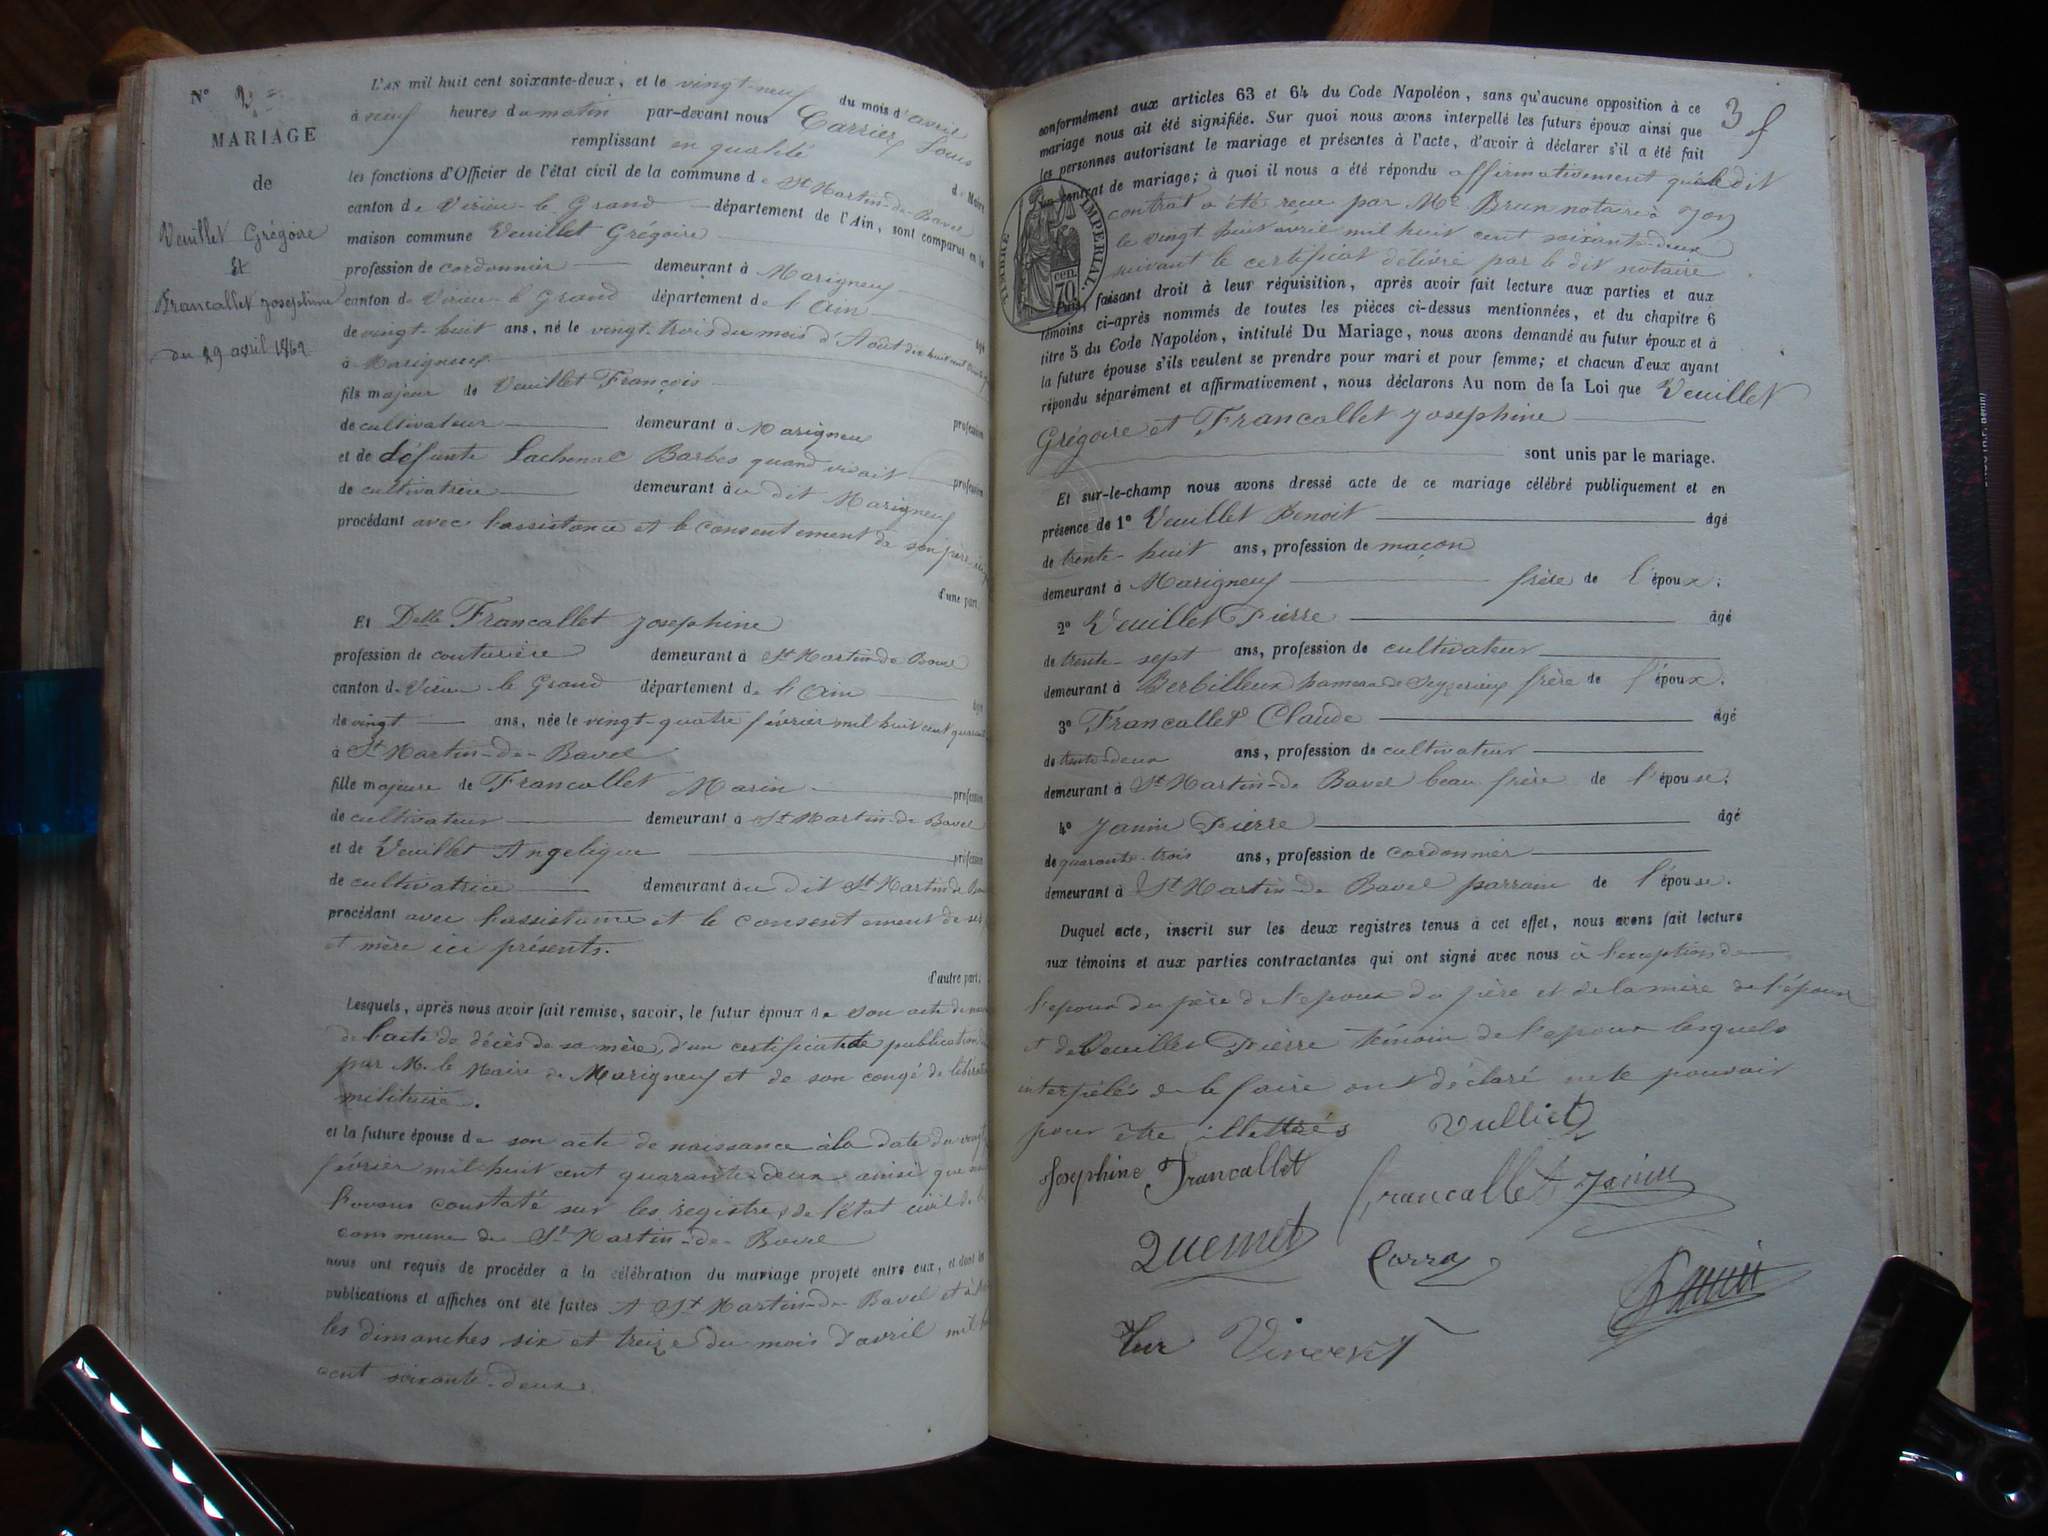 N° 2
MARIAGE
de
Veuillet Grégoire
et
Francallet Josephine
du 29 avril 1862
L'AN mil huit cent soixante-deux, et le vingt-neuf du mois d'avril
à neuf heures du matin par-devant nous Carrier Louis
remplissant en qualité de Maire
les fonctions d'Officier de l'état civil de la commune de St Martin-de-Bavel
canton de Virieu-le-Grand département de l'Ain, sont comparus en la
maison commune Veuillet Grégoire
profession de cordonnier demeurant à Marigneux
canton de Virieu-le Grand département de l'Ain âgé
de vingt-huit ans, né le vingt-trois du mois d'Août dix huit cent
à Marigneux
fils majeur de Veuillet François profession
de cultivateur demeurant à Marigneu
et de défunte Lachenal Barbes quand vivait profession
de cultivatrice demeurant au dit Marigneux
procédant avec l'assistance et le consentement de son père
d'une part.
Et Delle Francallet Josephine
profession de couturière demeurant à St Martin de Bavel
canton de Virieu-le Grand département de l'Ain âgée
de vingt ans, née le vingt-quatre février mil huit cent
à St Martin-de-Bavel
fille majeure de Francallet Marin profession
de cultivateur demeurant à St Martin-de Bavel
et de Veuillet Angelique profession
de cultivatrice demeurant au dit St Martin de
procédant avec l'assistance et le consentement de ses
et mère ici présents.
d'autre part.
Lesquels, après nous avoir fait remise, savoir, le futur époux de son acte de
de l'acte de décès de sa mère, d'un certificat de publication
par M. le Maire de Marigneux et de son congé de libération
militaire.
et la future épouse de son acte de naissance à la date du vingt
février mil huit cent quarante-deux ainsi que nous
l'avons constaté sur les registres de l'état civil de la
commune de St Martin-de-Bavel
nous ont requis de procéder à la célébration du mariage projeté entre eux, et dont les
publications et affiches ont été faites à St Martin-de-Bavel et à
les dimanches six et treize du mois d'avril mil
cent soixante-deux.
3
conformément aux articles 63 et 64 du Code Napoléon, sans qu'aucune opposition à ce
mariage nous ait été signifiée. Sur quoi nous avons interpellé les futurs époux ainsi que
les personnes autorisant le mariage et présentes à l'acte, d'avoir à déclarer s'il a été fait
un contrat de mariage; à quoi il nous a été répondu affirmativement que le dit
contrat a été reçu par Me Brun notaire à Yon
le vingt huit avril mil huit cent soixante-deux
suivant le certificat délivré par le dit notaire
TIMBRE IMPERIAL
70 cen.
Puis, faisant droit à leur réquisition, après avoir fait lecture aux parties et aux
témoins ci-après nommés de toutes les pièces ci-dessus mentionnées, et du chapitre 6
titre 5 du Code Napoléon, intitulé Du Mariage, nous avons demandé au futur époux et à
la future épouse s'ils veulent se prendre pour mari et pour femme; et chacun d'eux ayant
répondu séparément et affirmativement, nous déclarons Au nom de la Loi que Veuillet
Grégoire et Francallet Josephine
sont unis par le mariage.
Et sur-le-champ nous avons dressé acte de ce mariage célébré publiquement et en
présence de 1° Veuillet Benoit âgé
de trente-huit ans, profession de maçon
demeurant à Marigneux frère de l'époux;
2° Veuillet Pierre âgé
de trente-sept ans, profession de cultivateur
demeurant à Berbilleux hameau de Seyzerieux frère de l'époux;
3° Francallet Claude âgé
de trente-deux ans, profession de cultivateur
demeurant à St Martin-de Bavel beau frère de l'épouse;
4° Janin Pierre âgé
de quarante-trois ans, profession de cordonnier
demeurant à St Martin-de Bavel parrain de l'épouse.
Duquel acte, inscrit sur les deux registres tenus à cet effet, nous avons fait lecture
aux témoins et aux parties contractantes qui ont signé avec nous à l'exception de
l'epoux du père de l'epoux du père et de la mère de l'épouse
et de Veuillet Pierre témoin de l'epoux lesquels
interpélés de le faire ont déclaré ne le pouvoir
pour être illettrés Vulliet
Josephine Francallet Francallet Janin
Quemet Carra
Vincent